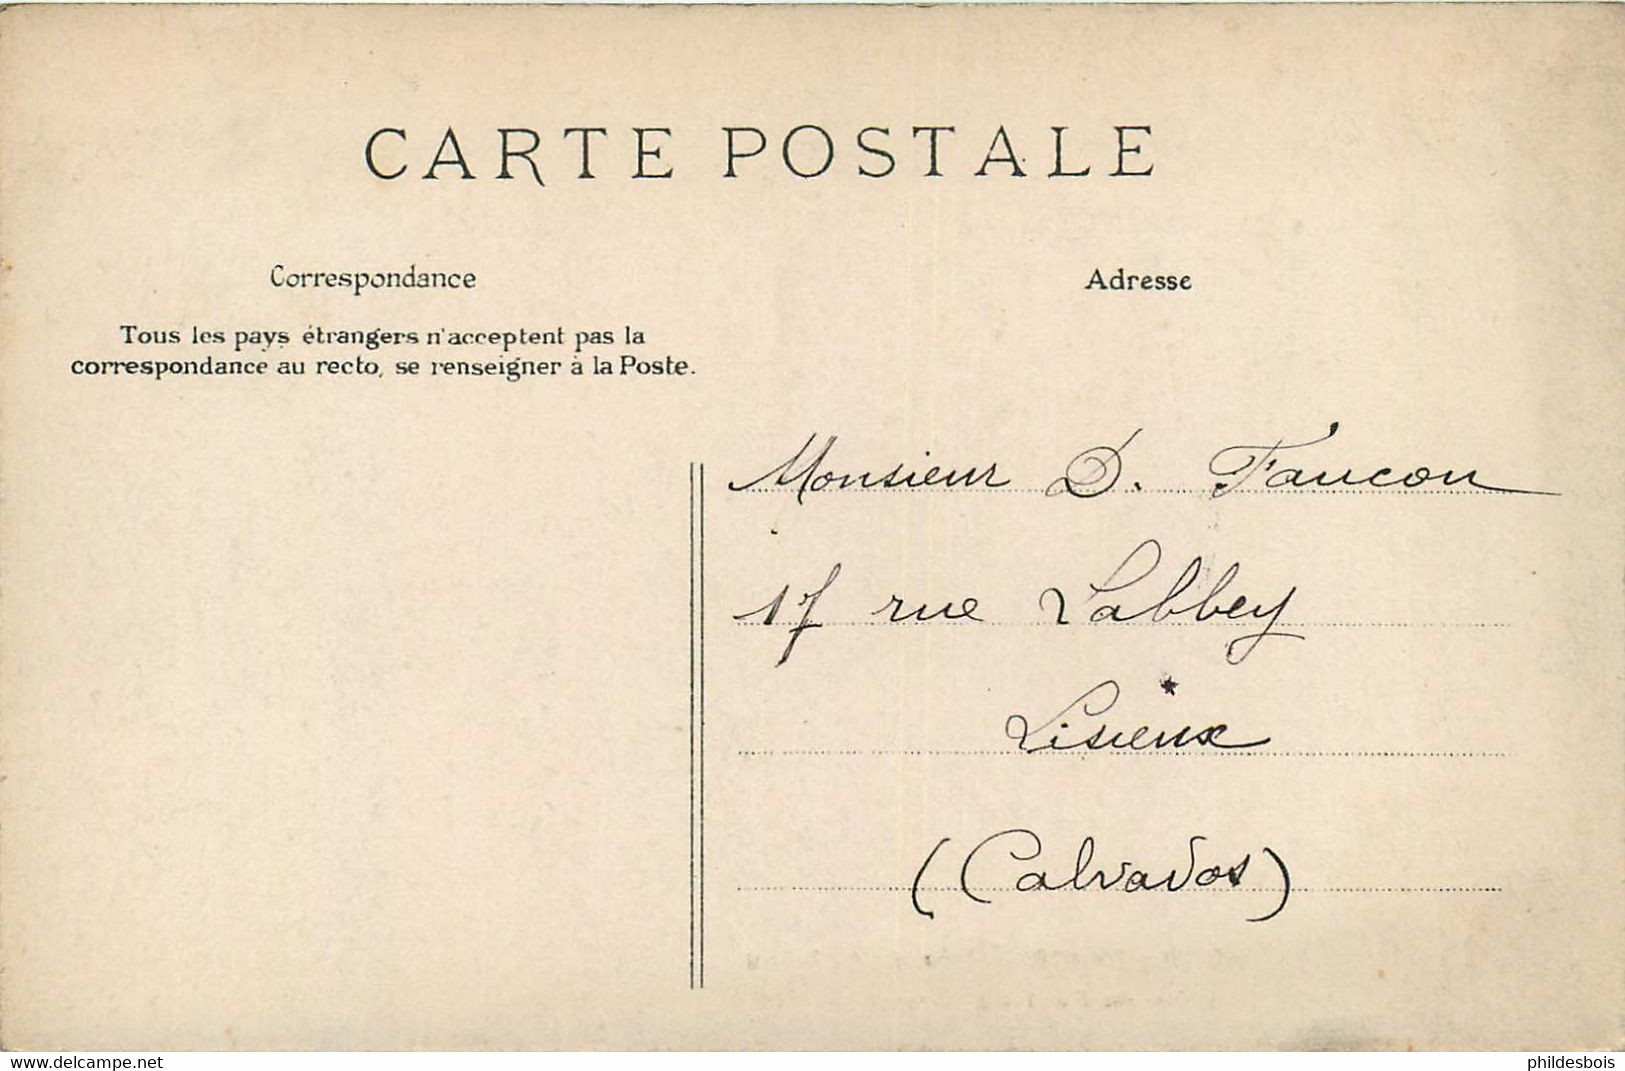 CARTE POSTALE
Correspondance
Tous les pays étrangers n'acceptent pas la
correspondance au recto, se renseigner à la Poste.
Adresse
Monsieur D. Faucon
17 rue Labbey
Lisieux
(Calvados)
www.delcampe.net
phildesbois